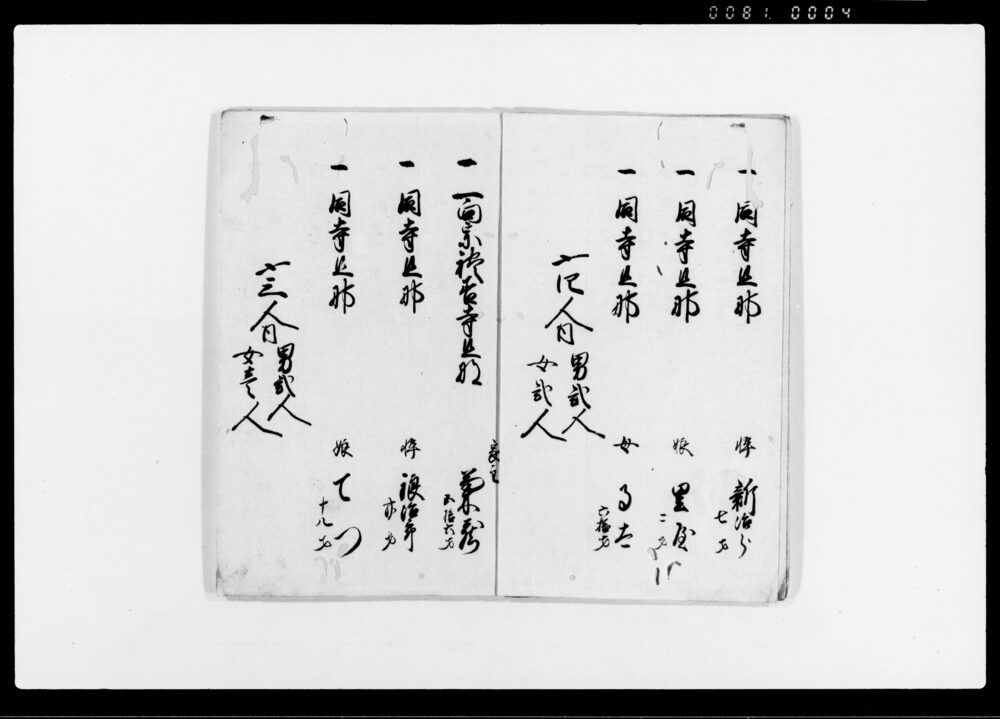 0081. 0004
一 同寺旦那 悴 新治郎
七才
一 同寺旦那 娘
二才
一 同寺旦那 女
六拾才
〆 人内 男弐人
女弐人
一 一向宗 寺旦那 家主
五拾六才
一 同寺旦那 悴 治郎
才
一 同寺旦那 娘 てつ
十八才
〆三人内 男弐人
女壱人